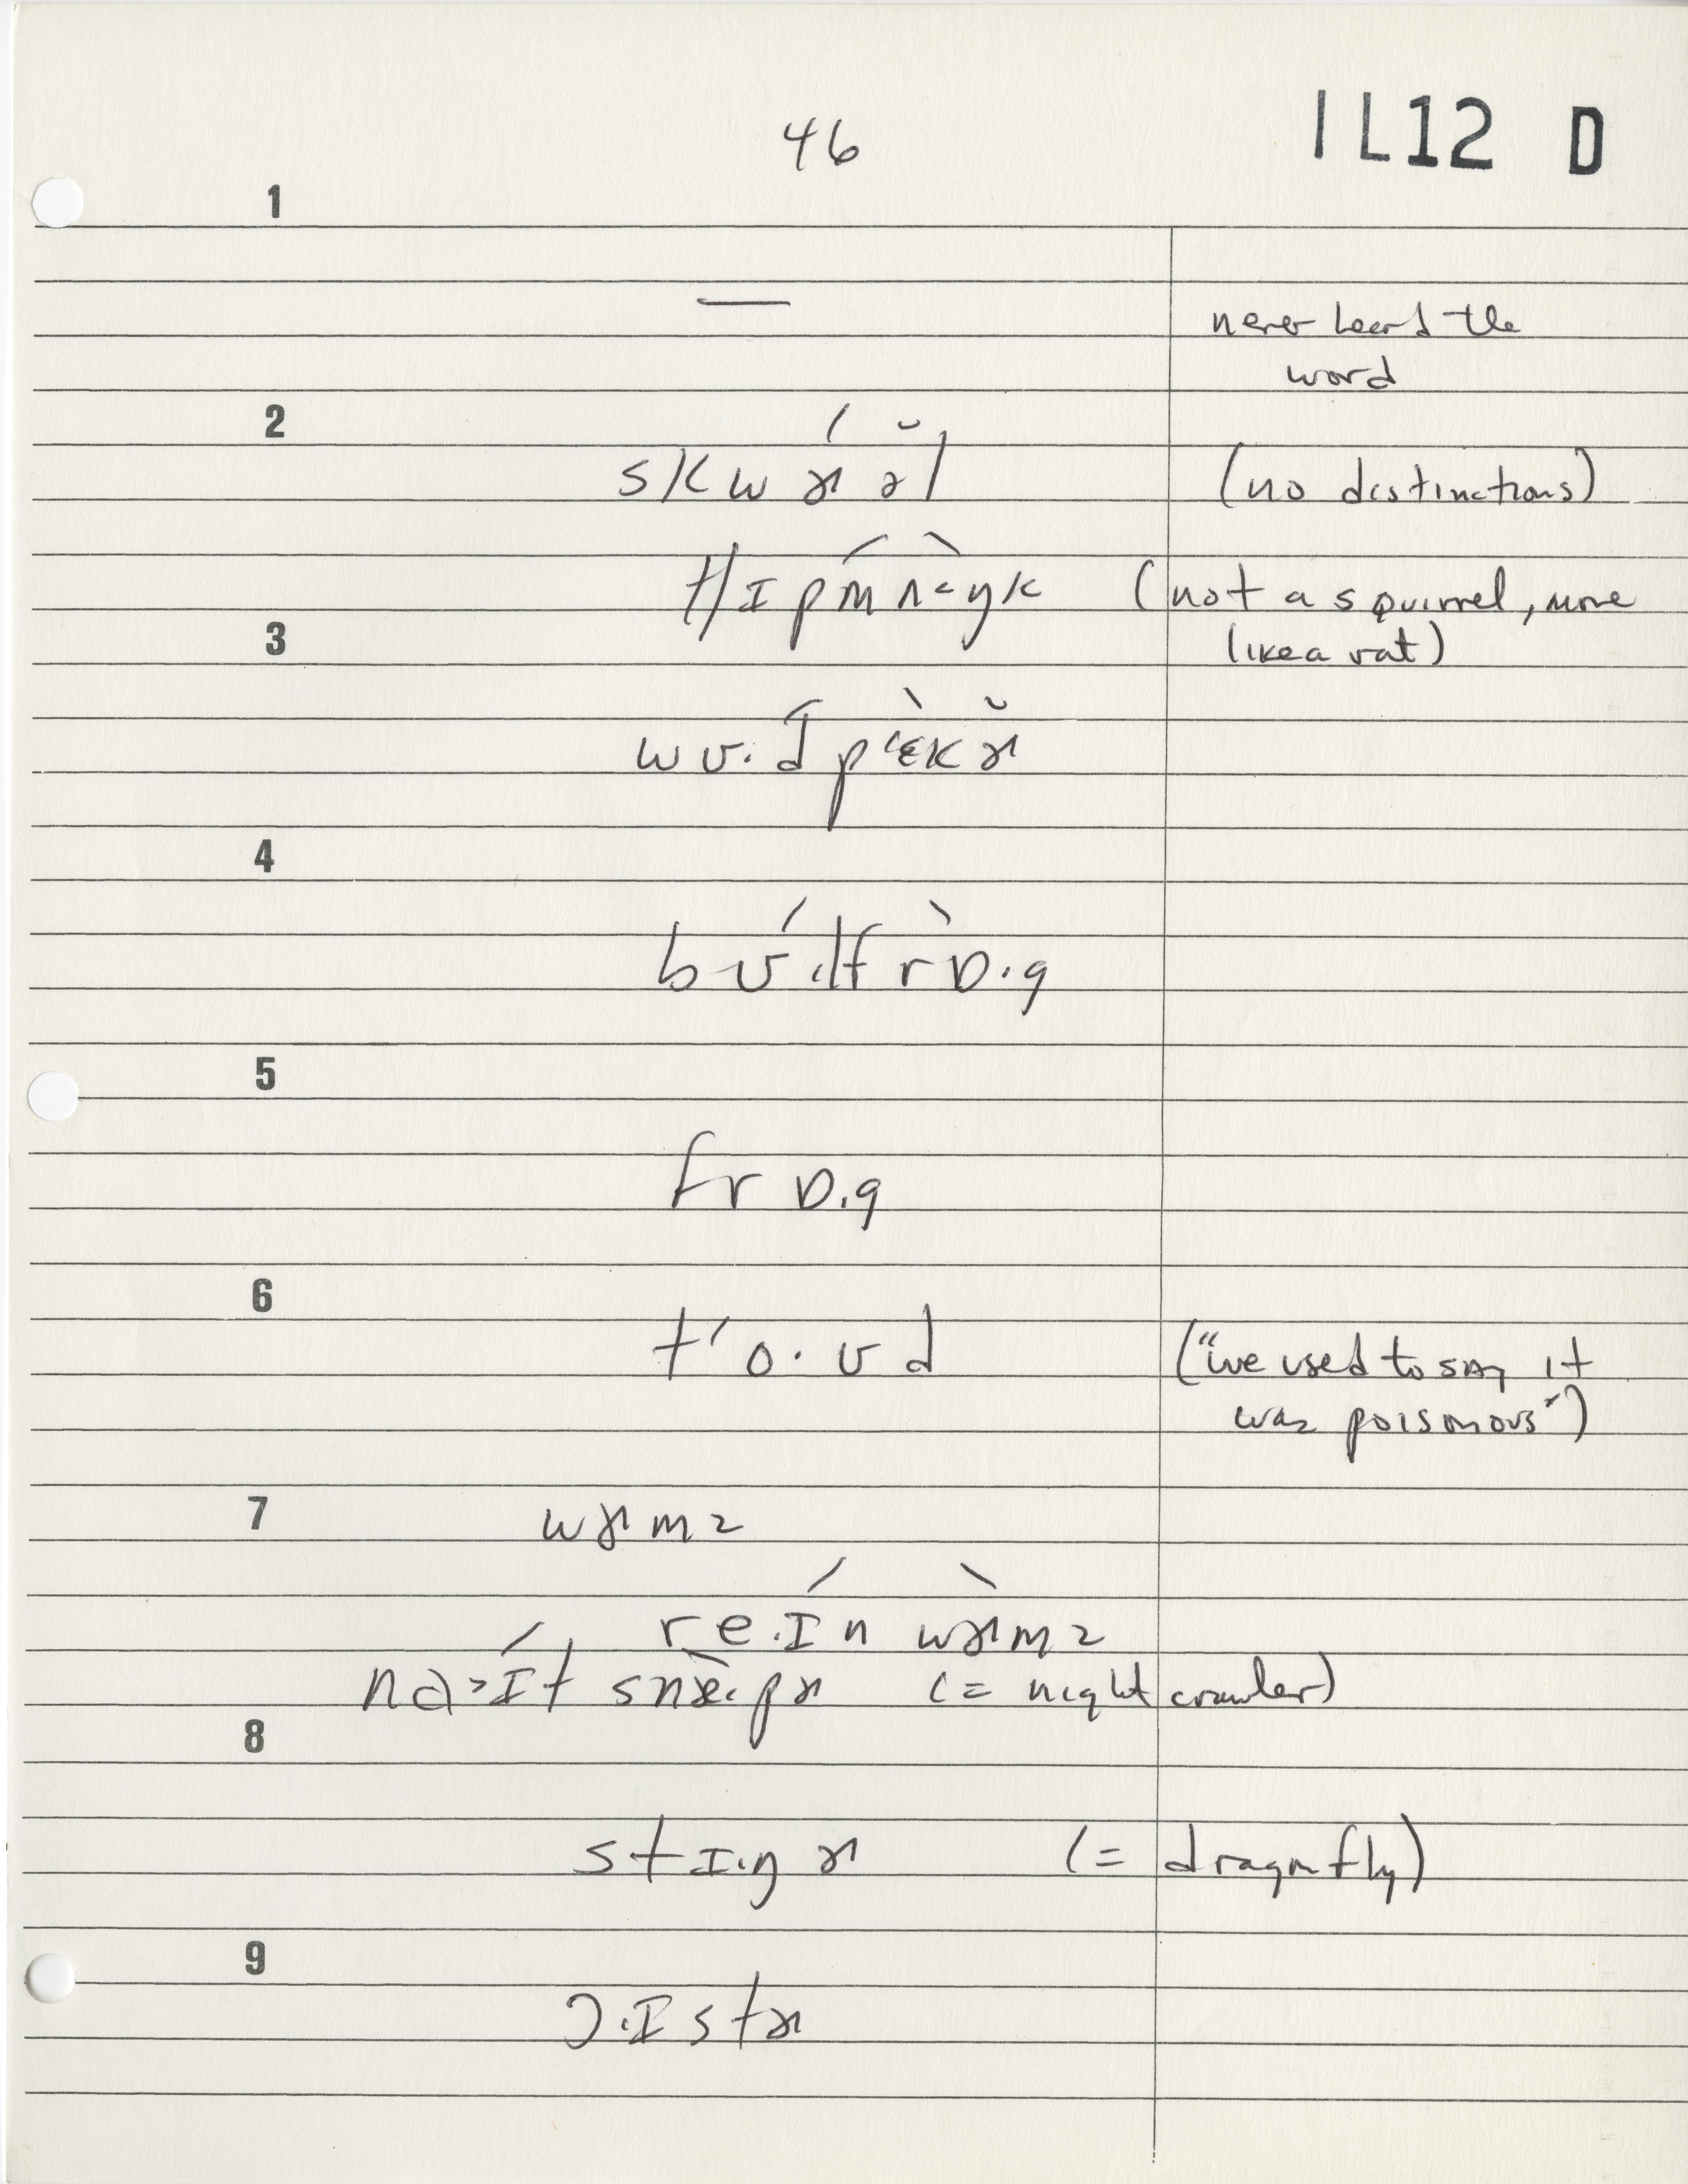 46
IL12 D
1
— never heard the
word
2
skwɝ́ə̆l (no distinctions)
tʃɪpmʌ́<ŋ̀k (not a squirrel, more
like a rat)
3
wʊ.́dpʽɛ̀kɚ̆
4
bʊ́.lfrɒ̀.g
5
frɒ.g
6
tʽo.ʊd ("we used to say it
was poisonous")
7
wɝmz
re.ɪ́n wɝ̀mz
na>ɪ́t snæ̀.pɚ (= night crawler)
8
stɪ.ŋɚ (= dragonfly)
9
ɔ.ɪstɚ